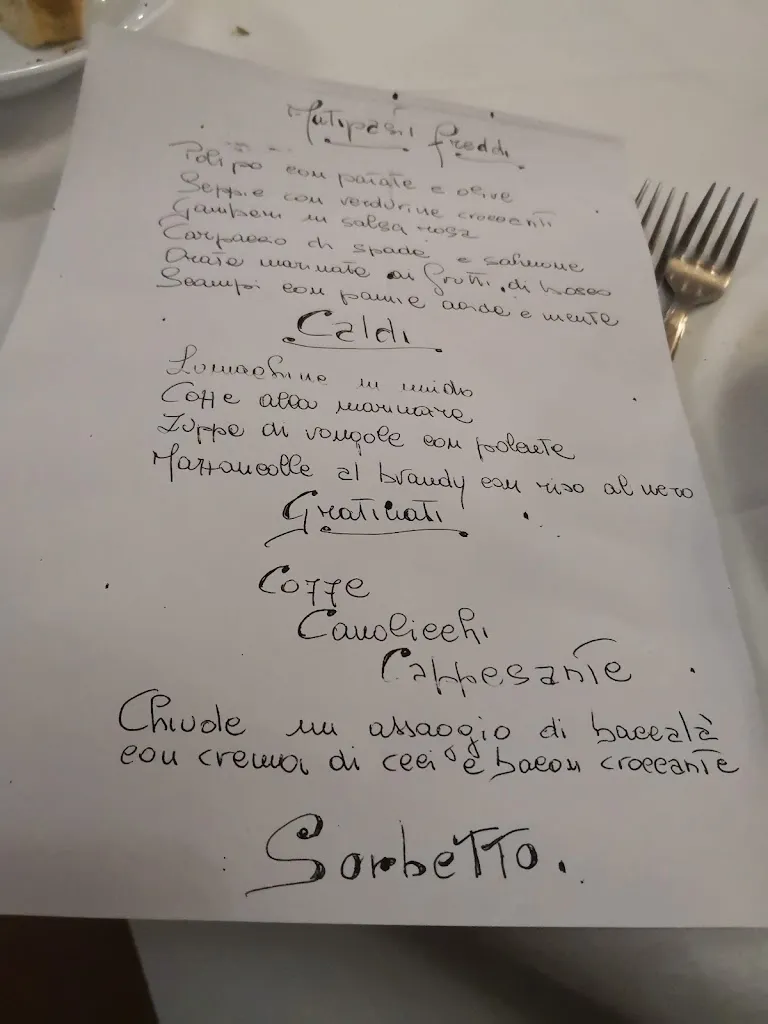 Antipasti freddi
Polipo con patate e olive
Seppie con verdurine croccanti
Gamberi in salsa rosa
Carpaccio di spada e salmone
Orate marinate ai frutti di bosco
Scampi con panna acida e menta
Caldi
Lumachine in umido
Cozze alla marinara
Zuppa di vongole con polenta
Mazzancolle al brandy con riso al nero
Gratinati
Cozze
Canolicchi
Cappesante
Chiude un assaggio di baccalà
con crema di ceci e bacon croccante
Sorbetto.